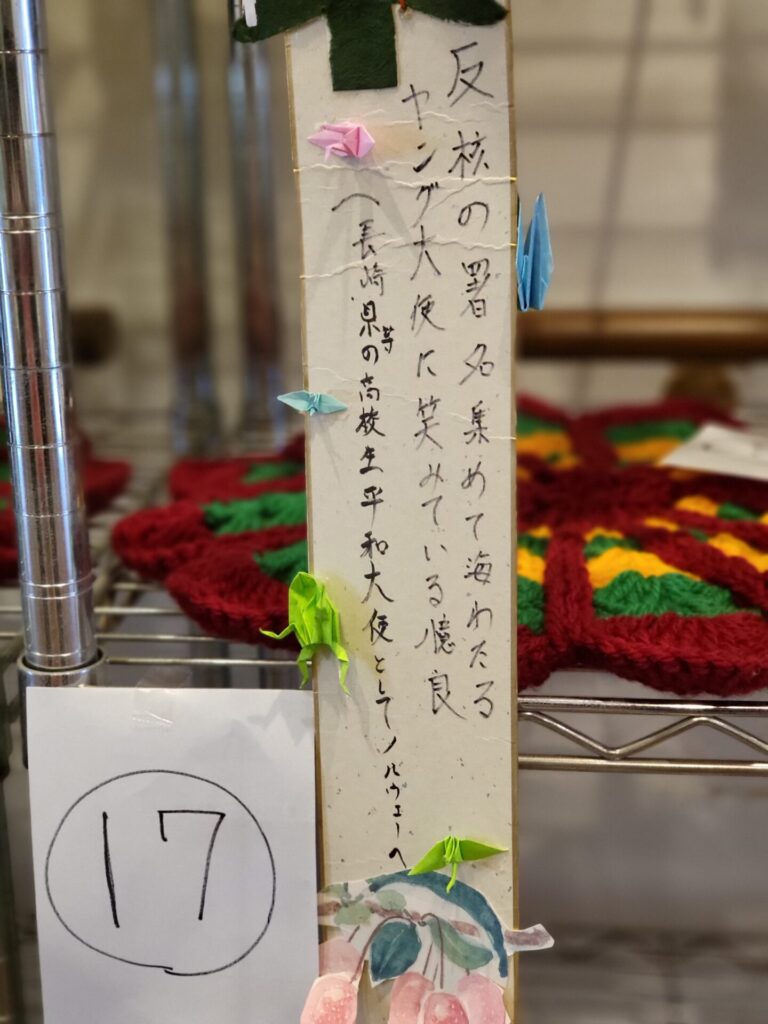 反核の署名集めて海わたる
ヤング大使に笑みている憶良
(長崎県等の高校生平和大使としてノルウェーへ
17